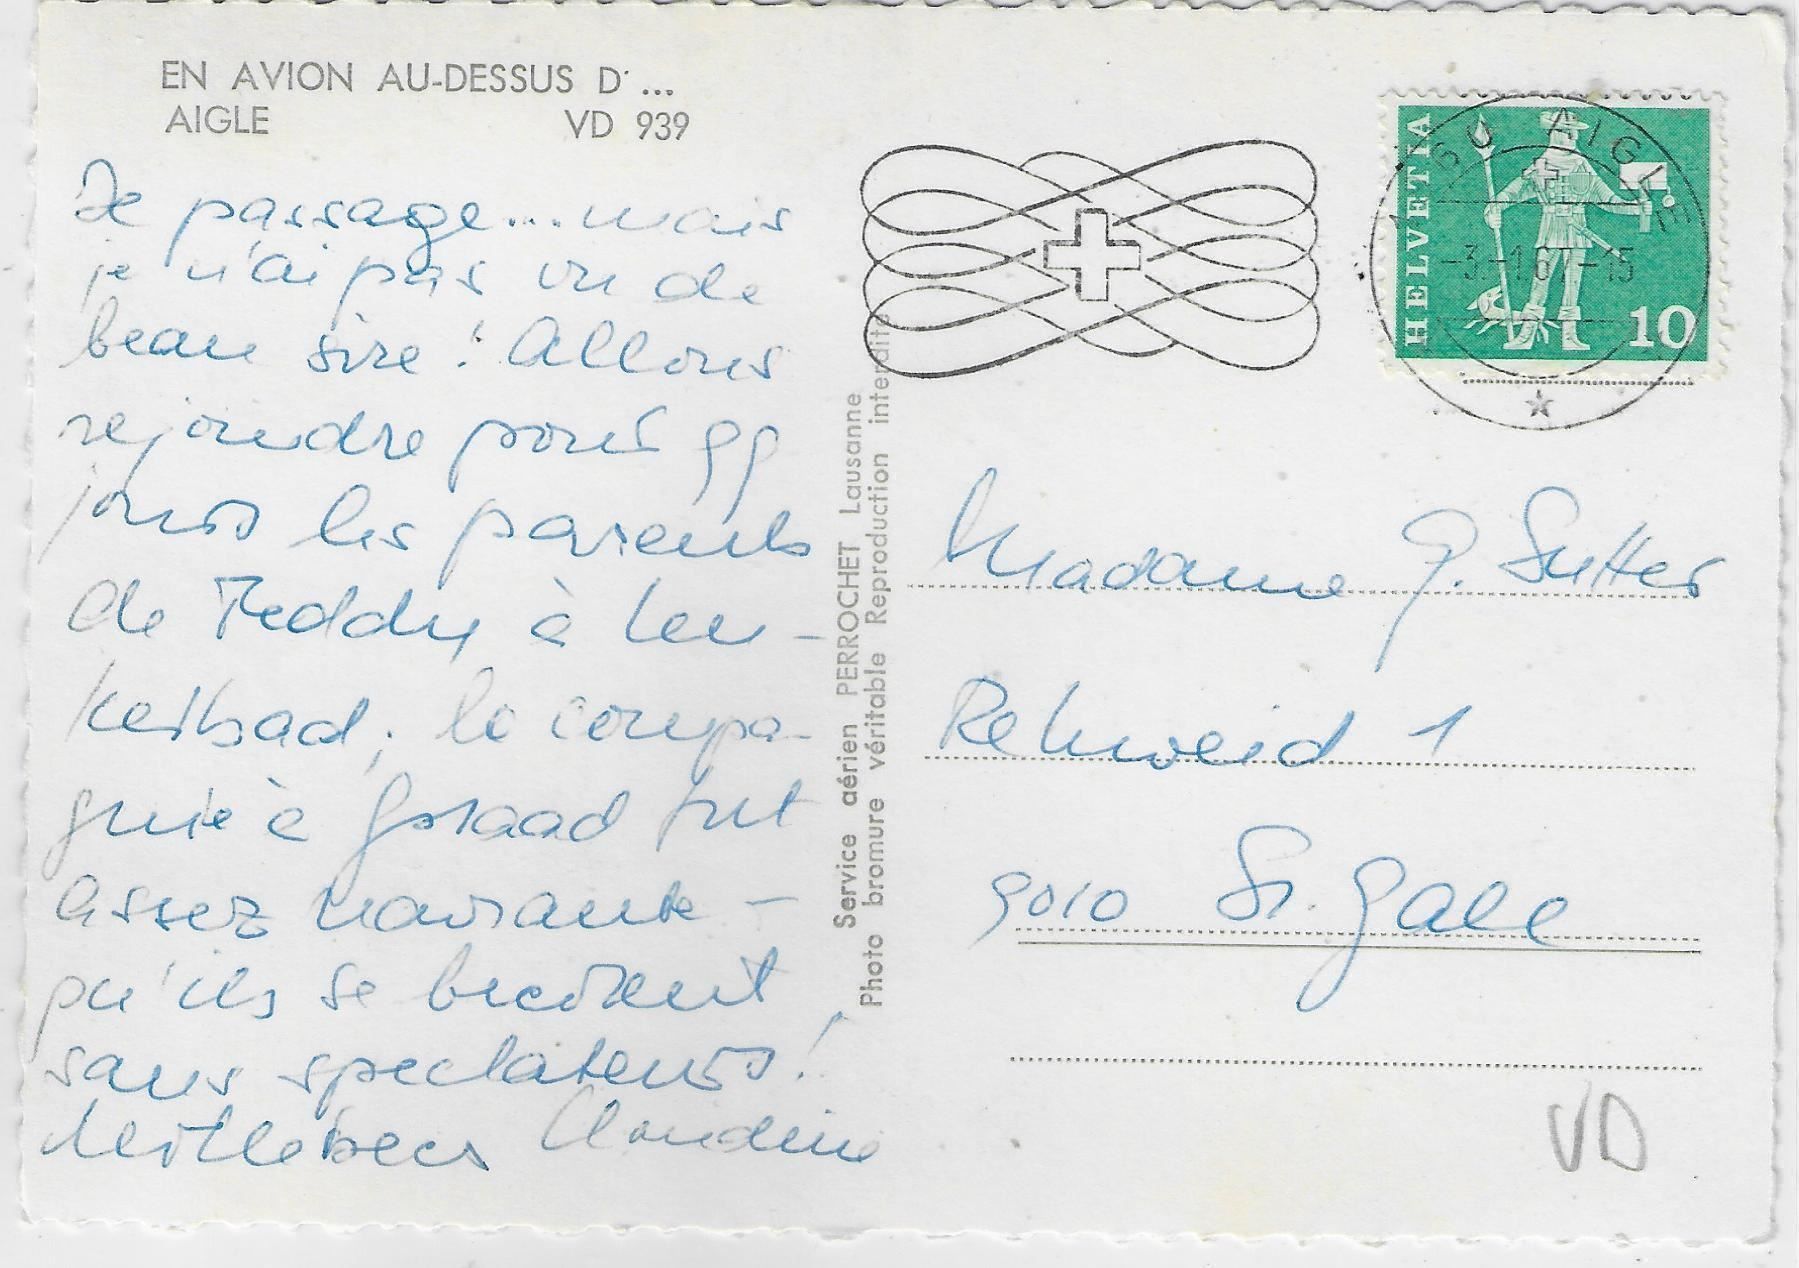 EN AVION AU-DESSUS D'...
AIGLE VD 939
De passage... mais
je n'ai pas vu de
beau sire! Allons
rejoindre pour qq
jours les parents
de Teddy à Leu-
kerbad; la compa-
gnie à Gstaad fut
assez navrante -
qu'ils se bécotent
sans spectateurs!
Claudine
Service aérien PERROCHET Lausanne
Photo bromure véritable Reproduction interdite
HELVETIA
10
AIGLE
Madame G. Sutter
Rehweid 1
9010 St. Gall
VD